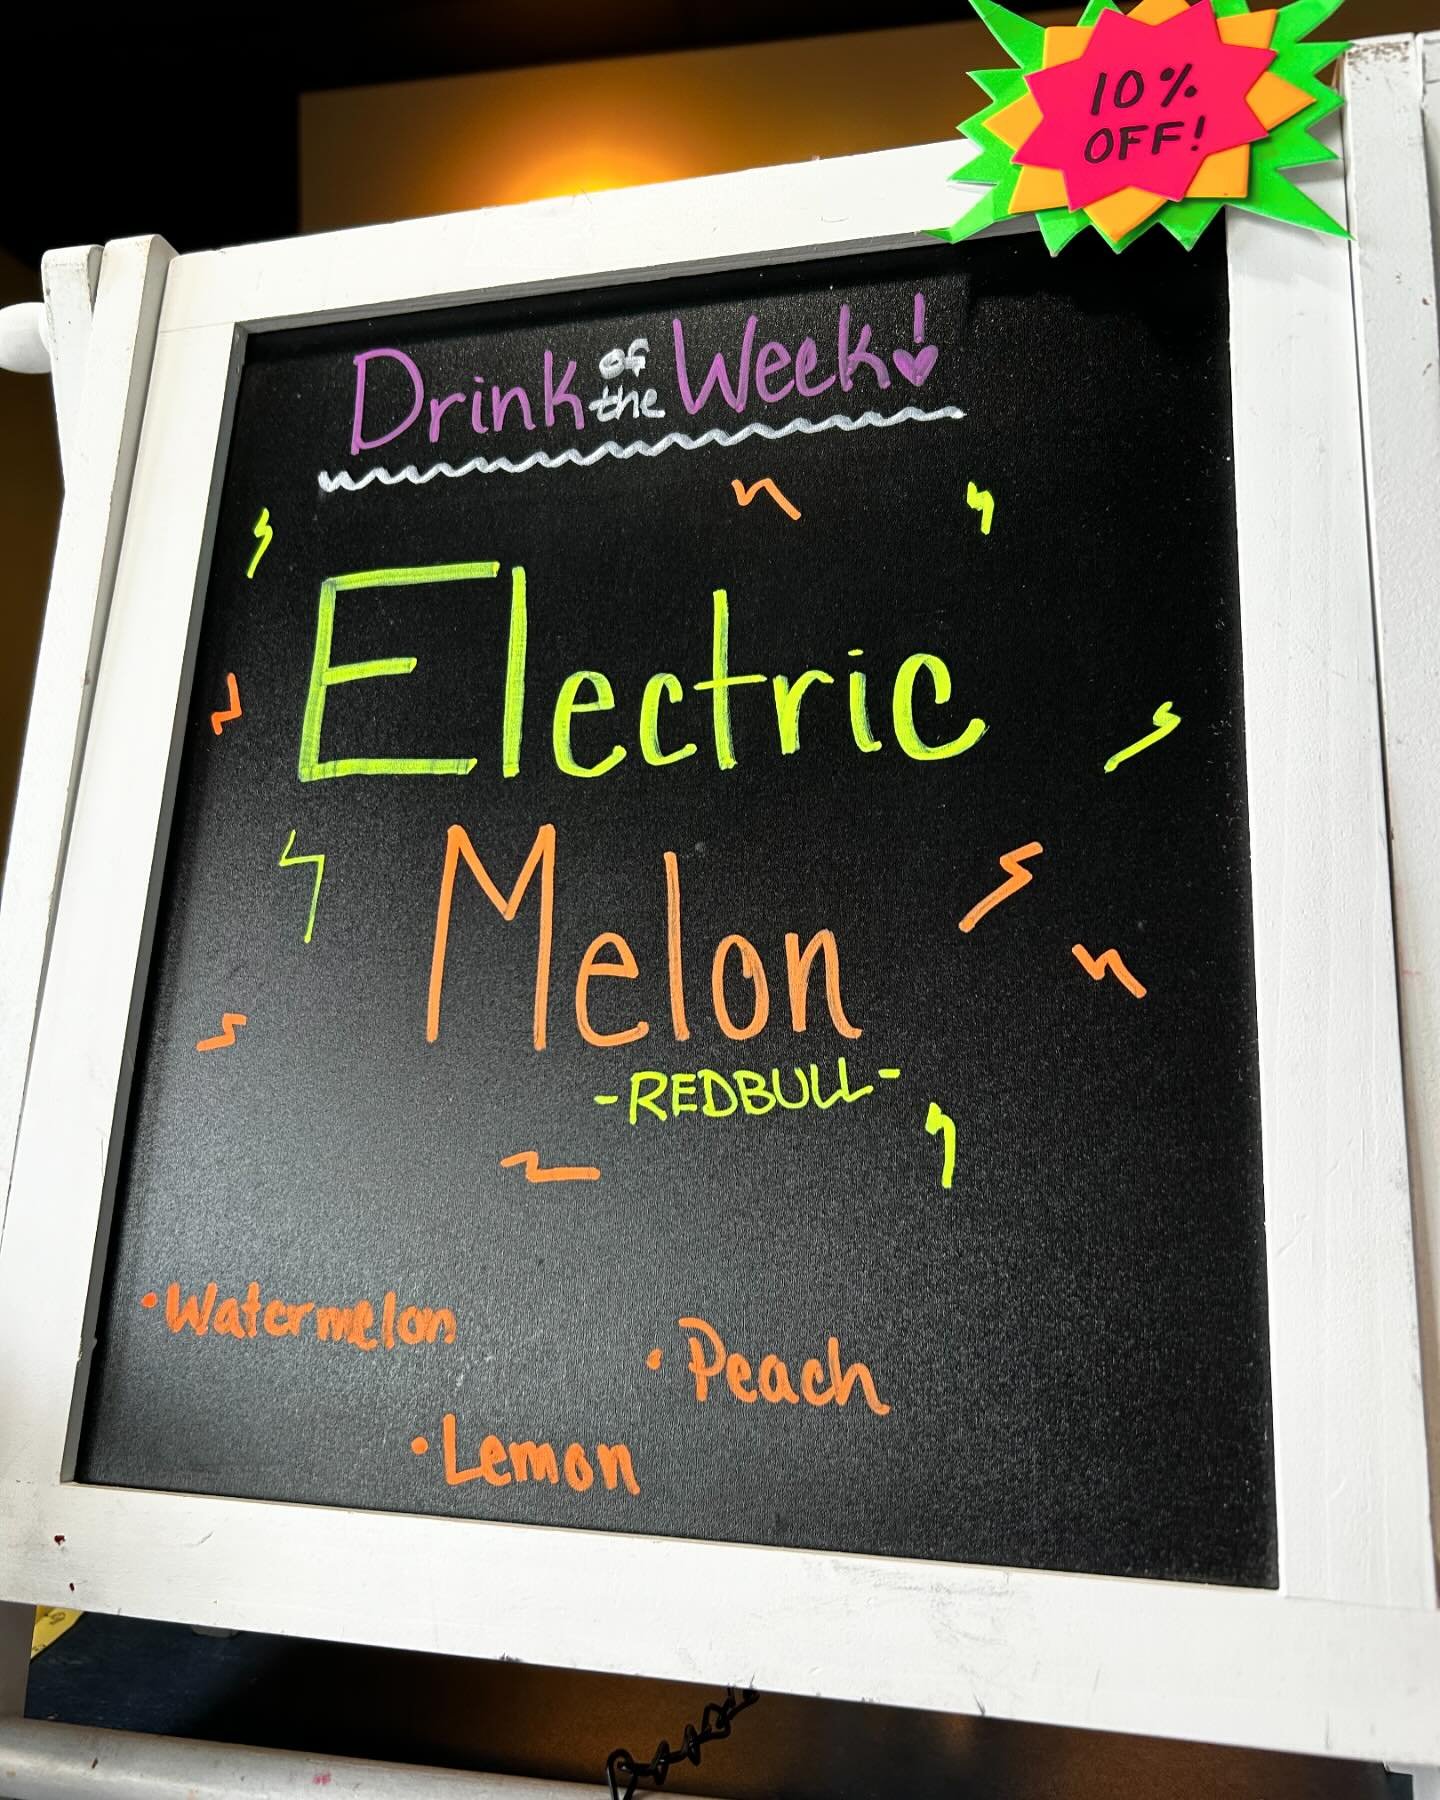 10%
OFF!
Drink of the Week!
Electric
Melon
-REDBULL-
•Watermelon
•Peach
•Lemon